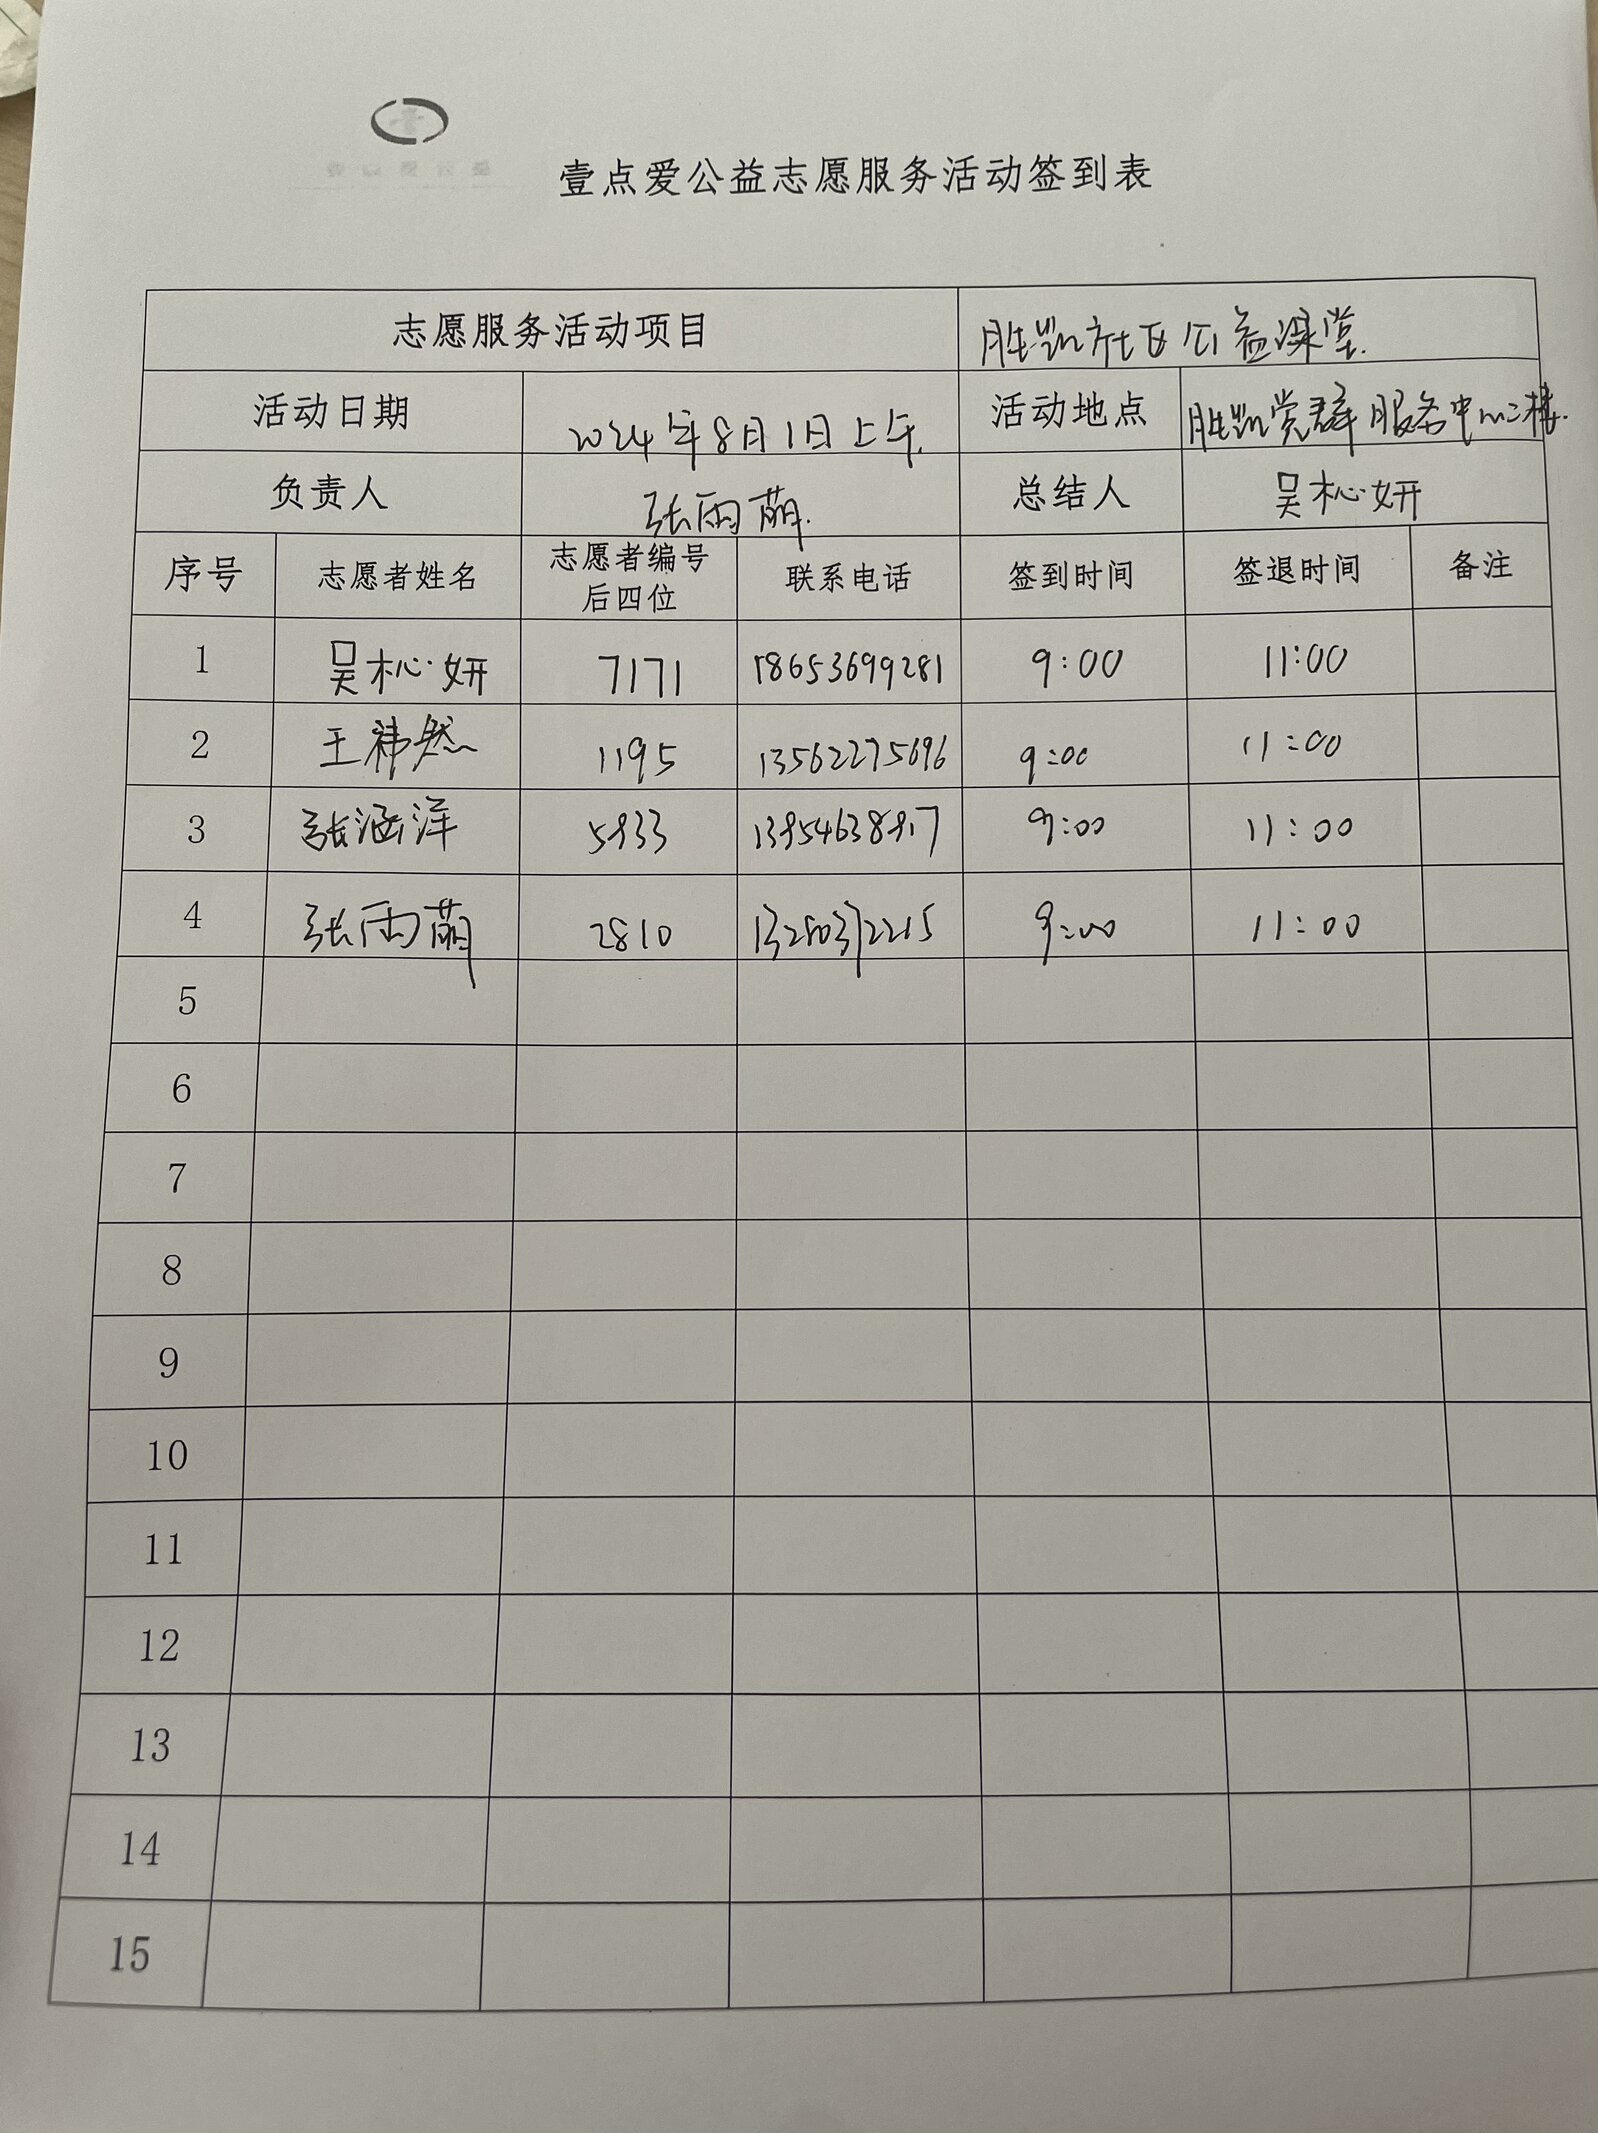 壹点爱公益志愿服务活动签到表
志愿服务活动项目 胜凯社区公益课堂.
活动日期 2024年8月1日上午. 活动地点 胜凯党群服务中心二楼.
负责人 张雨萌. 总结人 吴杺妍
序号 志愿者姓名 志愿者编号 联系电话 签到时间 签退时间 备注
后四位
1 吴杺妍 7171 18653699281 9:00 11:00
2 王祎然 1195 13562275696 9:00 11:00
3 张涵洋 5933 9:00 11:00
4 张雨萌 2810 13280372215 9:00 11:00
5
6
7
8
9
10
11
12
13
14
15